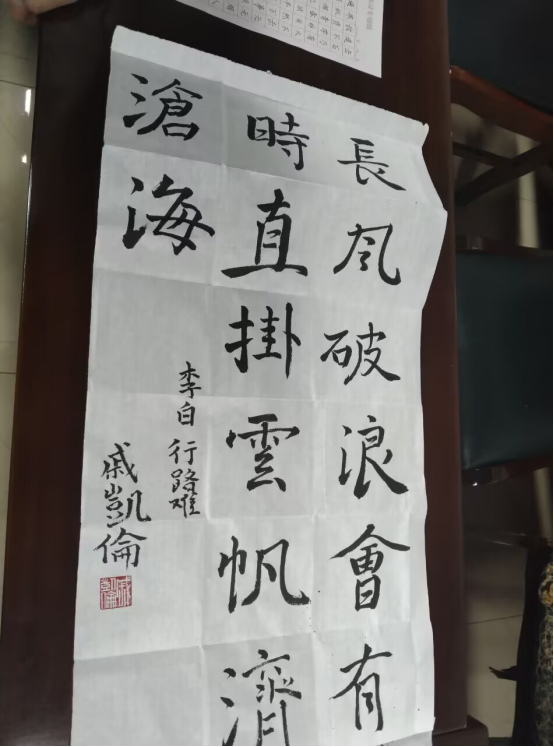 長風破浪會有
時直掛雲帆濟
滄海
李白 行路难
戚凱倫